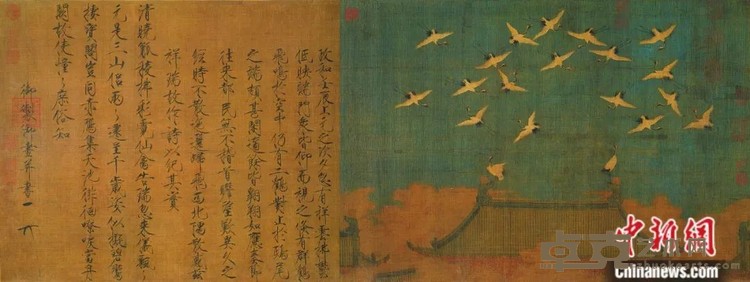 政和壬辰上元之次夕忽有祥雲拂鬱
低映端門衆皆仰而視之倏有群鶴
飛鳴於空中仍有二鶴對止於鴟尾
之端頗甚閒適餘皆翱翔如應奏節
往來都民無不稽首瞻望歎異久之
經時不散迤邐歸飛西北隅散感茲
祥瑞故作詩以紀其實
清曉觚稜拂彩霓仙禽告瑞忽來儀飄々
元是三山侶兩々還呈千歲姿似擬碧鸞
棲寶閣豈同赤雁集天池徘徊嘹唳當丹
闕故使憧々庶俗知
御製御畫并書
中新網
Chinanews.com